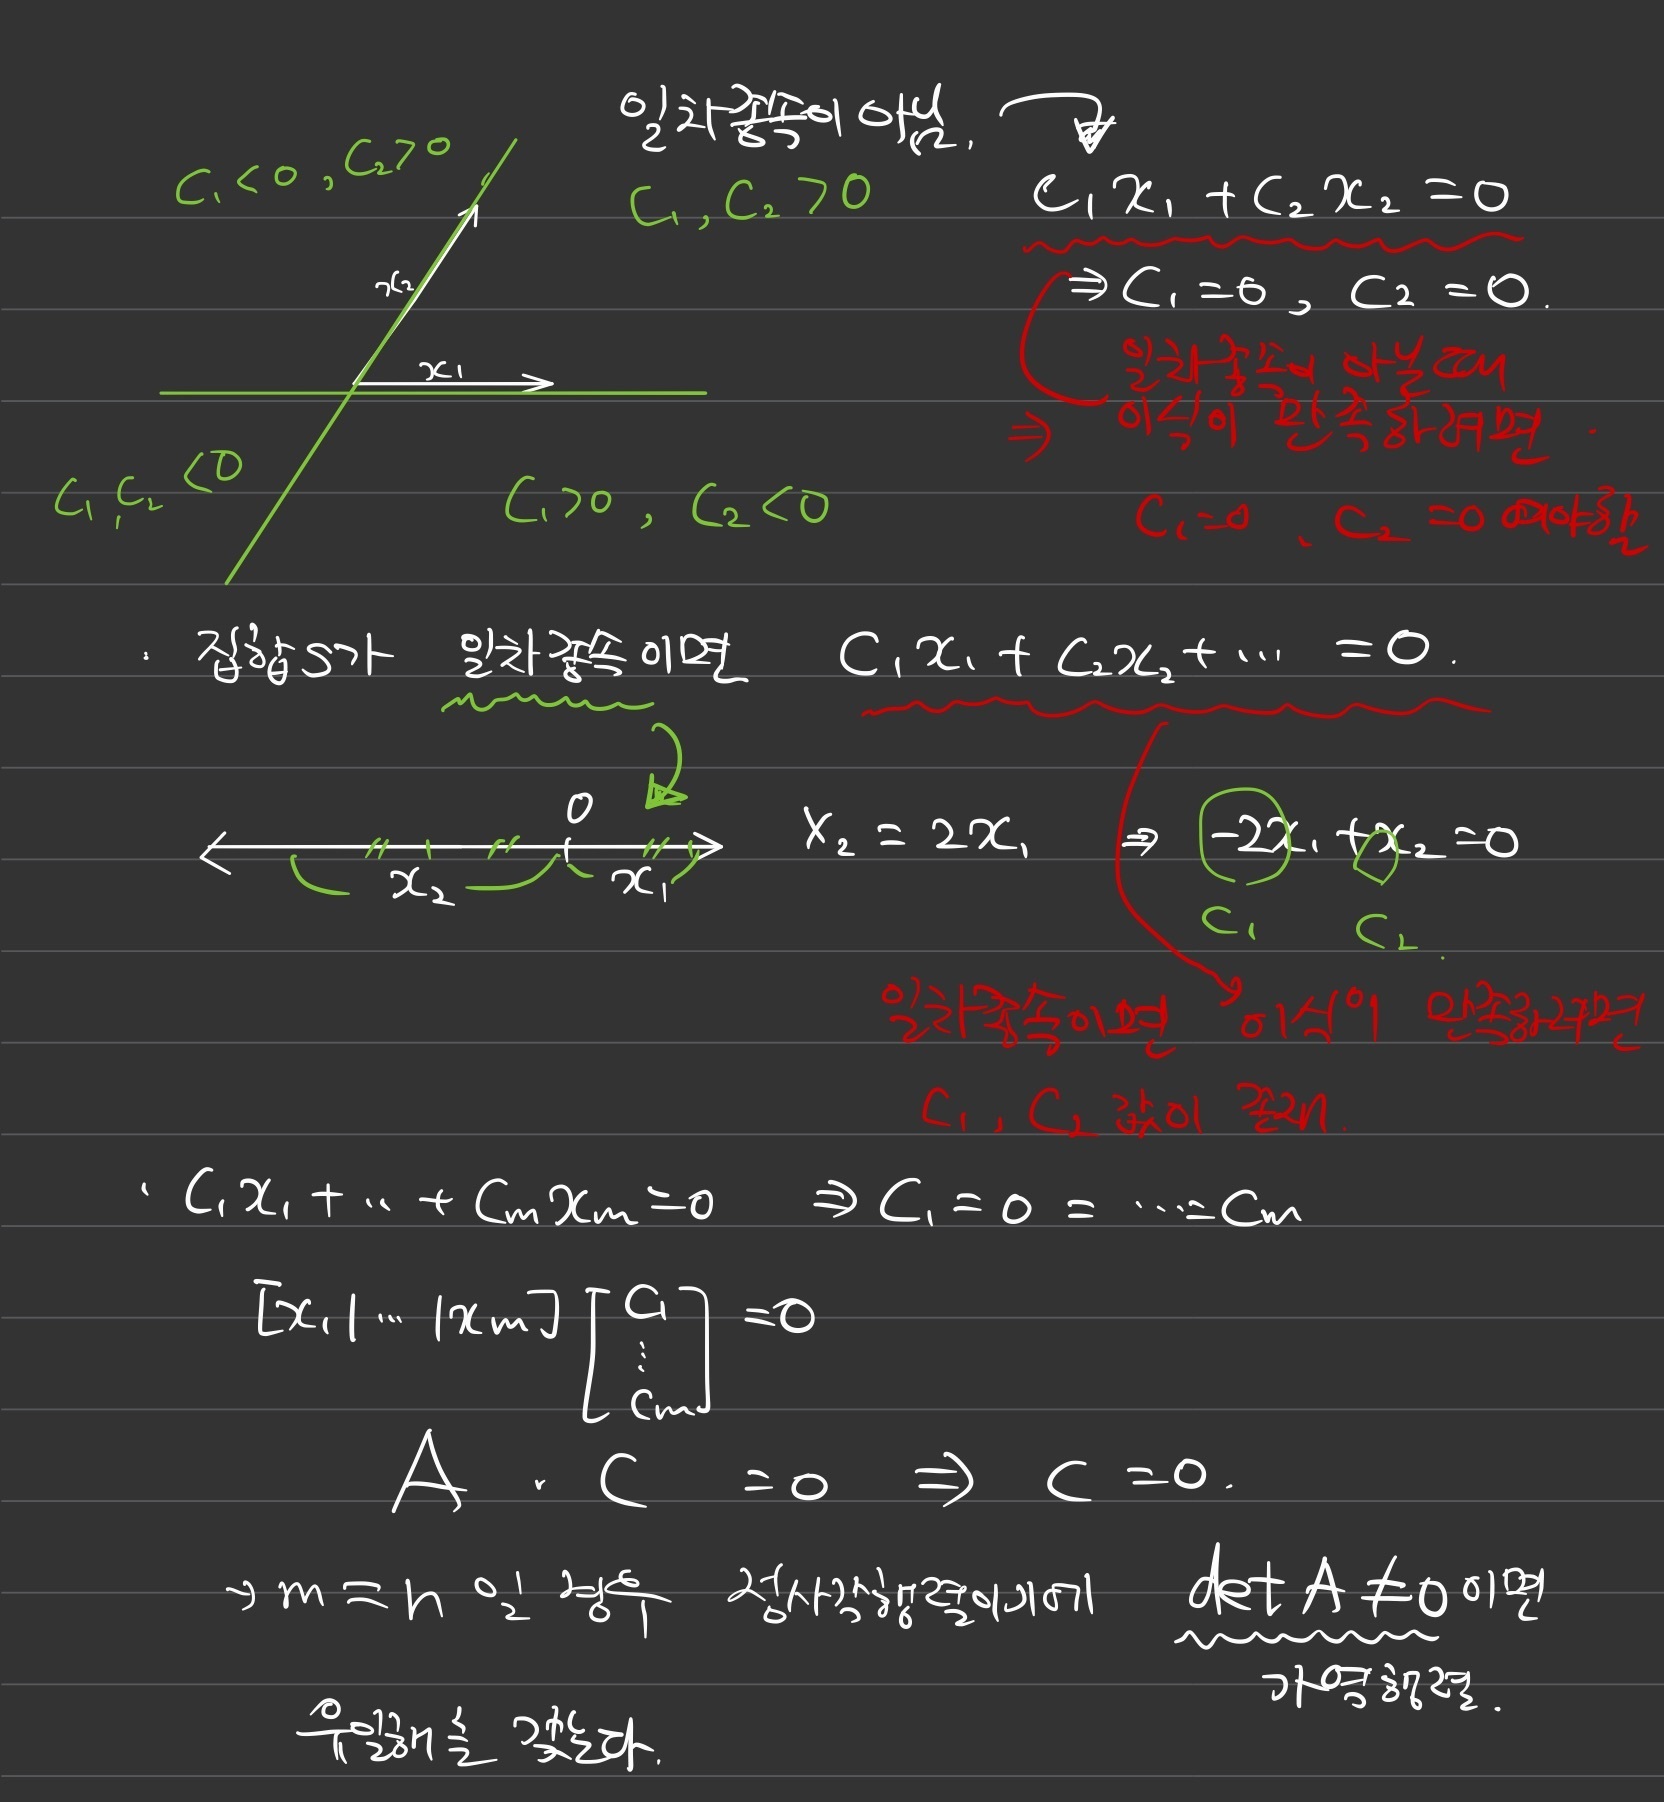 일차종속이 아님.
C₁<0, C₂>0
C₁, C₂>0
C₁x₁ + C₂x₂ = 0
⇒ C₁=0, C₂=0.
x₂
x₁
일차종속이 아닐때
⇒ 이식이 만족하려면.
C₁, C₂<0
C₁>0, C₂<0
C₁=0, C₂=0 여야함
· 집합S가 일차종속이면 C₁x₁ + C₂x₂ + ... = 0.
0
x₂ x₁
x₂ = 2x₁ ⇒ -2x₁ + x₂ = 0
C₁ C₂
일차종속이면 이식이 만족하려면
C₁, C₂ 값이 존재.
· C₁x₁ + .. + Cmxm = 0 ⇒ C₁ = 0 = ... = Cm
[x₁|...|xm] [C₁ ⋮ Cm] = 0
A · C = 0 ⇒ C = 0.
→ m = n 인 경우 정사각행렬이기에 det A ≠ 0 이면
가역행렬.
유일해를 갖는다.